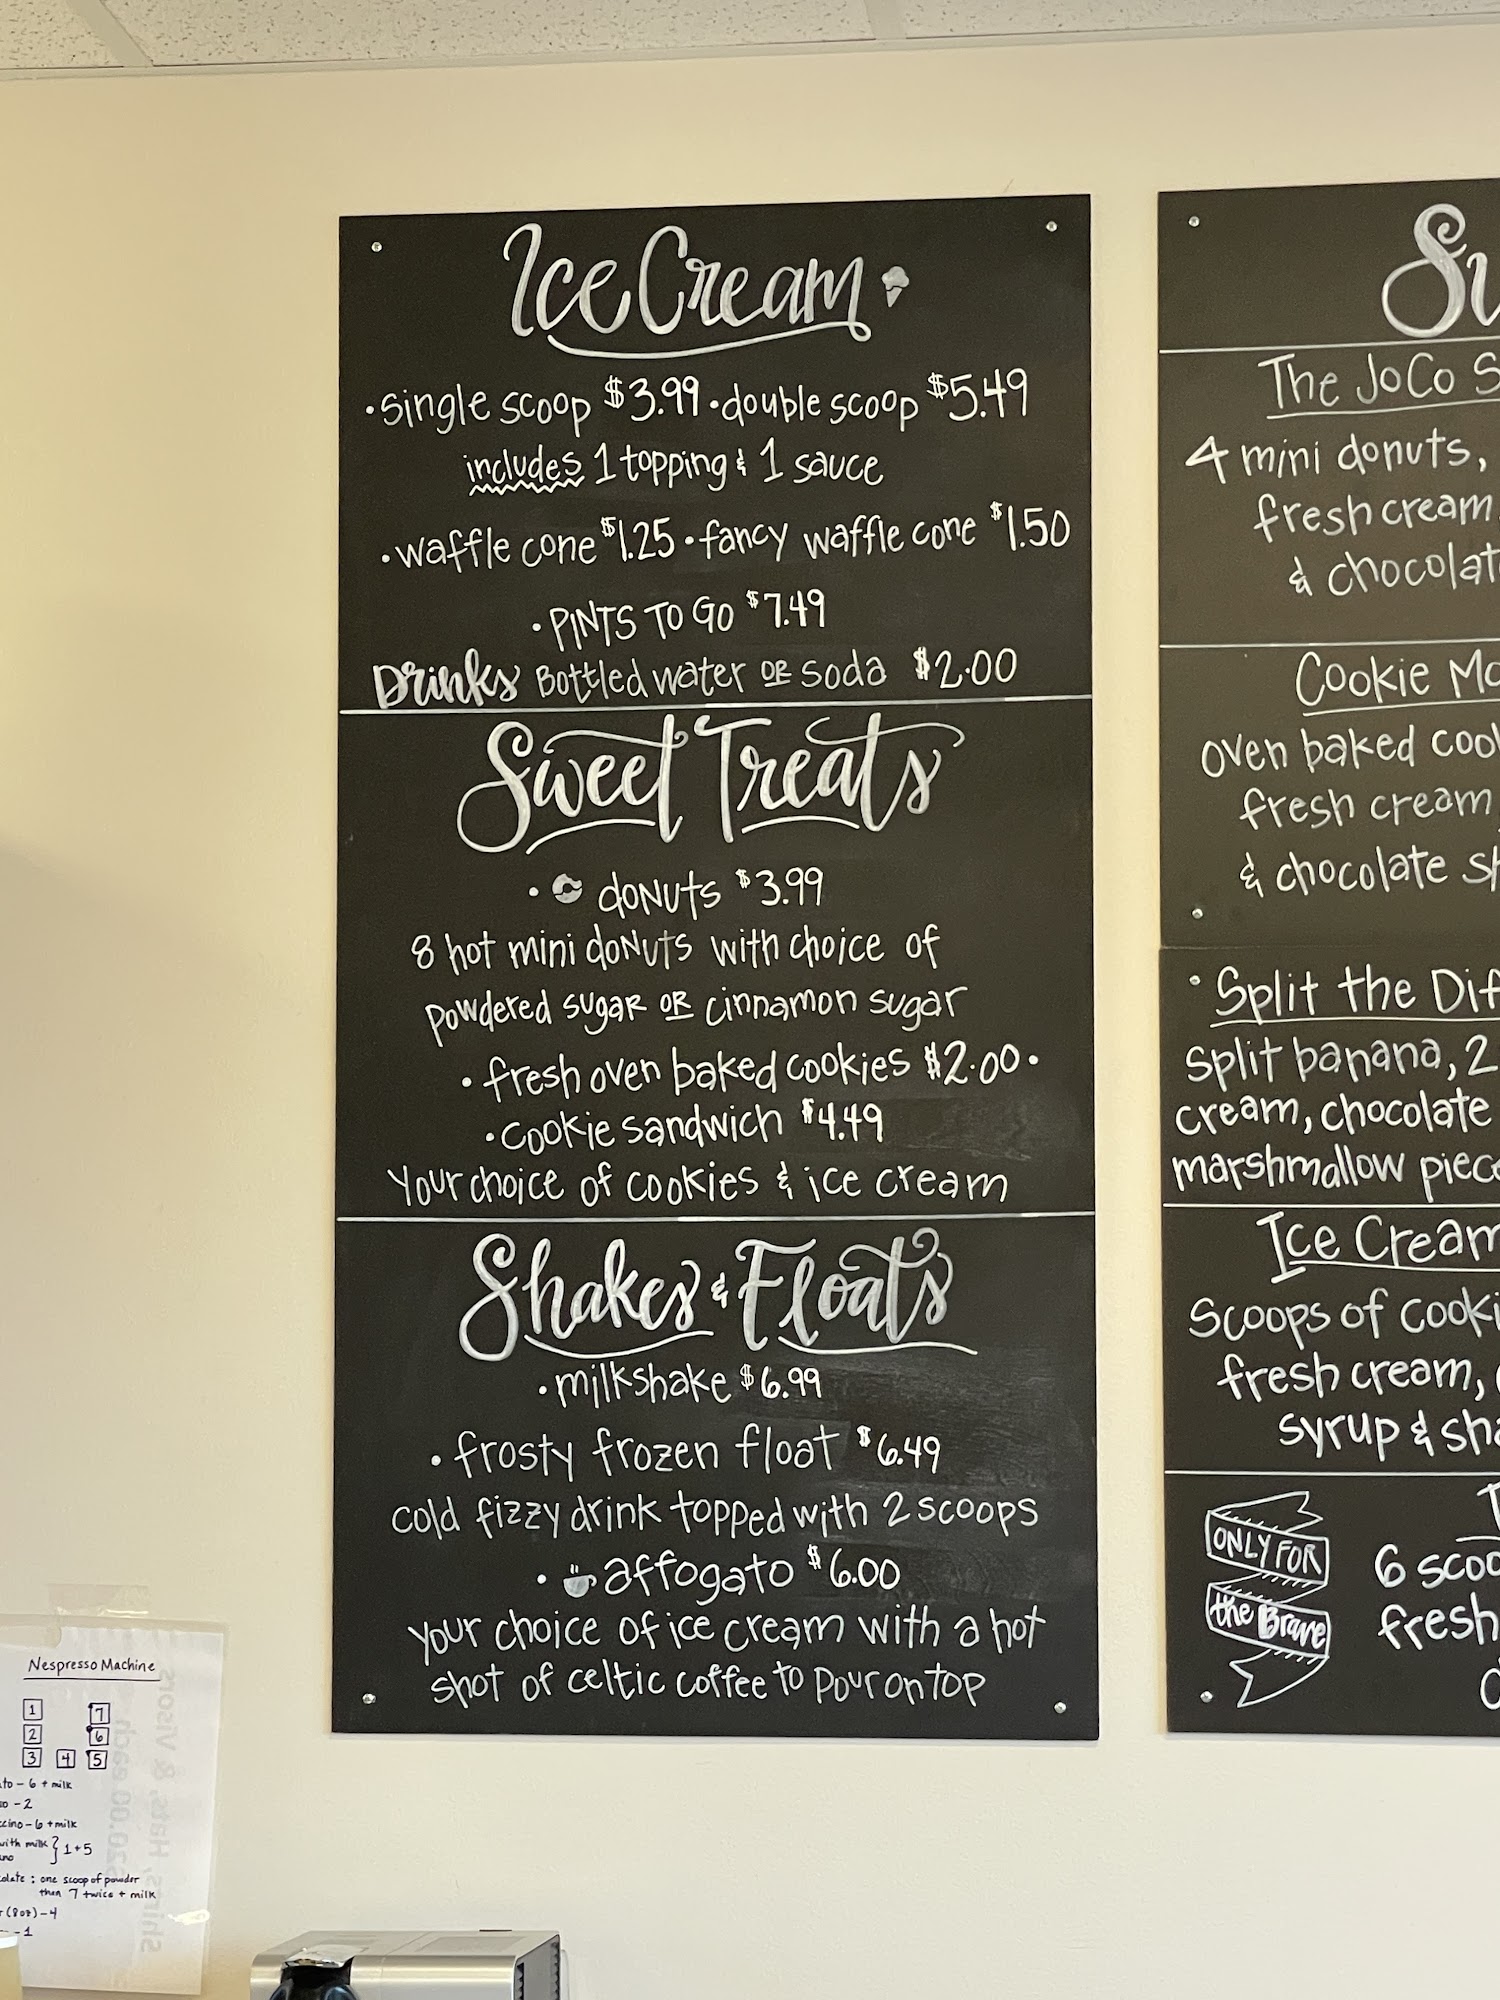 Ice Cream
• single scoop $3.99 • double scoop $5.49
includes 1 topping & 1 sauce
• waffle cone $1.25 • fancy waffle cone $1.50
• PINTS TO GO $7.49
Drinks Bottled water OR soda $2.00
Sweet Treats
• donuts $3.99
8 hot mini donuts with choice of
powdered sugar OR cinnamon sugar
• fresh oven baked cookies $2.00 •
• cookie sandwich $4.49
your choice of cookies & ice cream
Shakes & Floats
• milkshake $6.99
• frosty frozen float $6.49
cold fizzy drink topped with 2 scoops
• affogato $6.00
your choice of ice cream with a hot
shot of celtic coffee to pour on top
Su
The JoCo S
4 mini donuts,
fresh cream
& chocolat
Cookie Mo
oven baked cook
fresh cream
& chocolate sh
• Split the Dif
split banana, 2
cream, chocolate
marshmallow piece
Ice Cream
scoops of cooki
fresh cream,
syrup & sha
ONLY FOR
the Brave
6 scoo
fresh
Nespresso Machine
1 7
2 6
3 4 5
to - 6 + milk
so - 2
ccino - 6 + milk
with milk } 1 + 5
ano
olate : one scoop of powder
then 7 twice + milk
r (8oz) - 4
- 1
Shirts, Hats, & Visors
$20.00 each